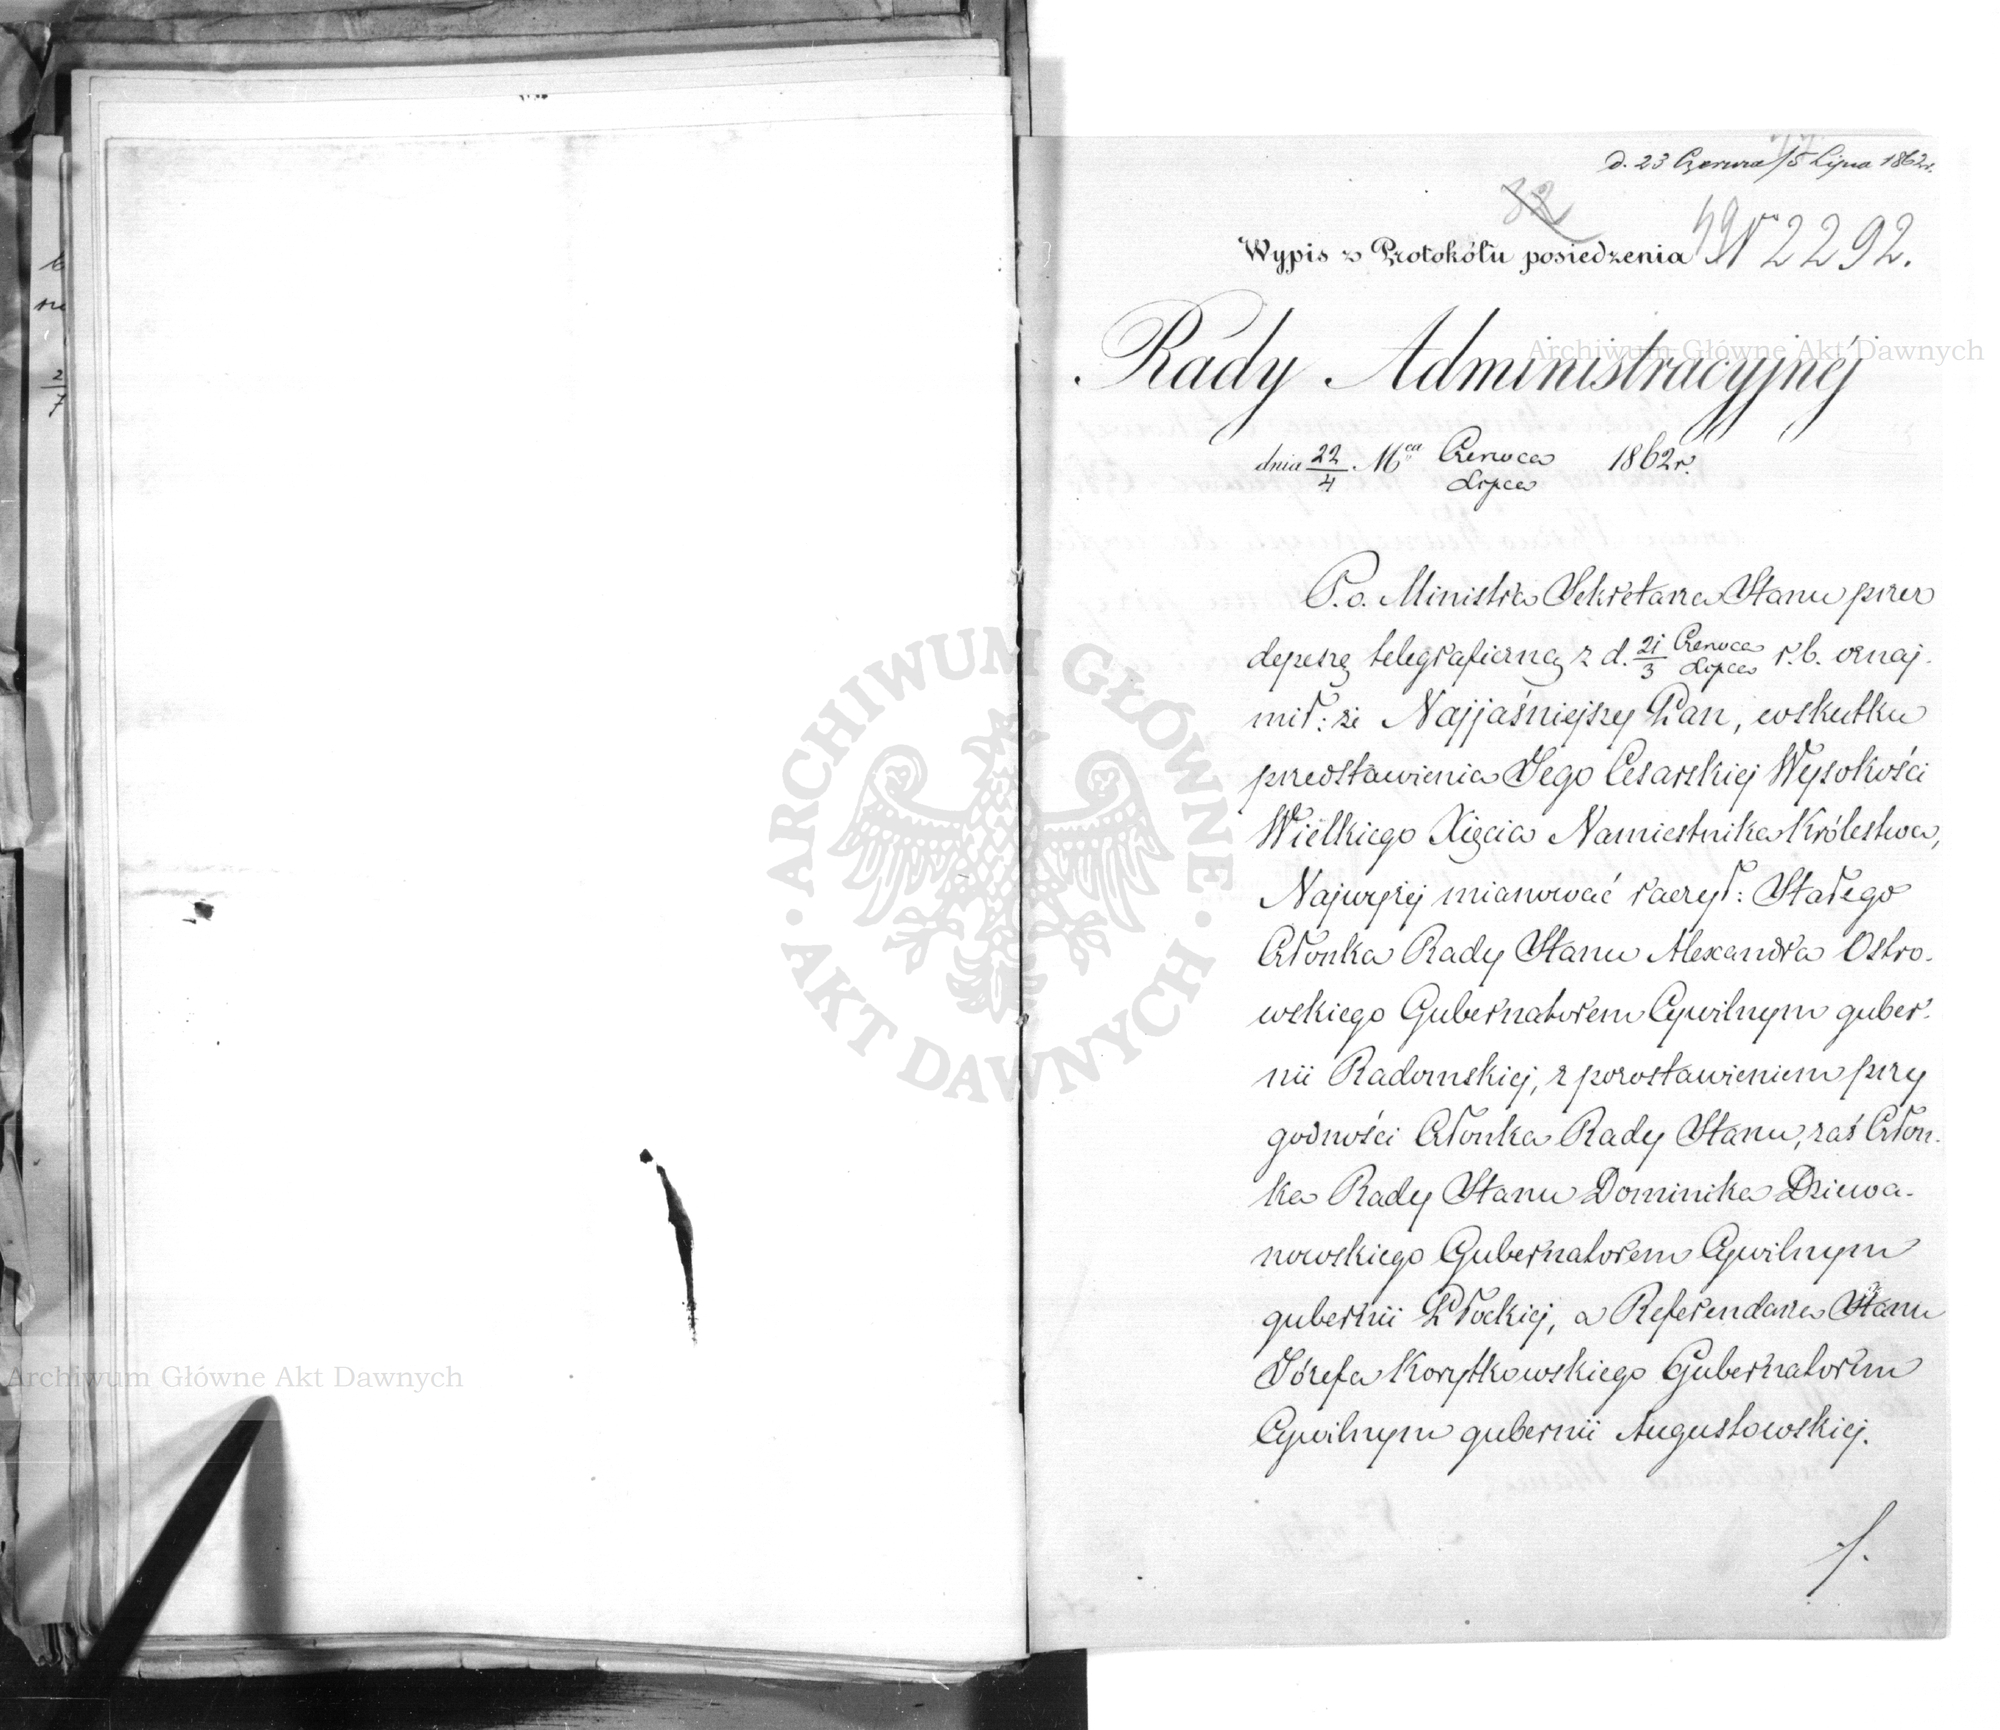 d. 23 Czerwca/5 Lipca 1862 r.
32
Wypis z Protokółu posiedzenia N 2292.
Rady Administracyjnéj
dnia 22/4 Mca Czerwca/Lipca 1862 r.
P. o. Ministra Sekretarza Stanu przez
depeszę telegraficzną z d. 21/3 Czerwca/Lipca r. b. oznaj-
mił: że Najjaśniejszy Pan, wskutku
przedstawienia Jego Cesarskiej Wysokości
Wielkiego Xięcia Namiestnika Królestwa,
Najwyżej mianować raczył: Stałego
Członka Rady Stanu Alexandra Ostro-
wskiego Gubernatorem Cywilnym guber-
nii Radomskiej, z pozostawieniem przy
godności Członka Rady Stanu, zaś Człon-
ka Rady Stanu Dominika Dziewa-
nowskiego Gubernatorem Cywilnym
gubernii Płockiej, a Referendarza Stanu
Józefa Korytkowskiego Gubernatorem
Cywilnym gubernii Augustowskiej.
2/7
Archiwum Główne Akt Dawnych
Archiwum Główne Akt Dawnych
ARCHIWUM GŁÓWNE · AKT DAWNYCH ·